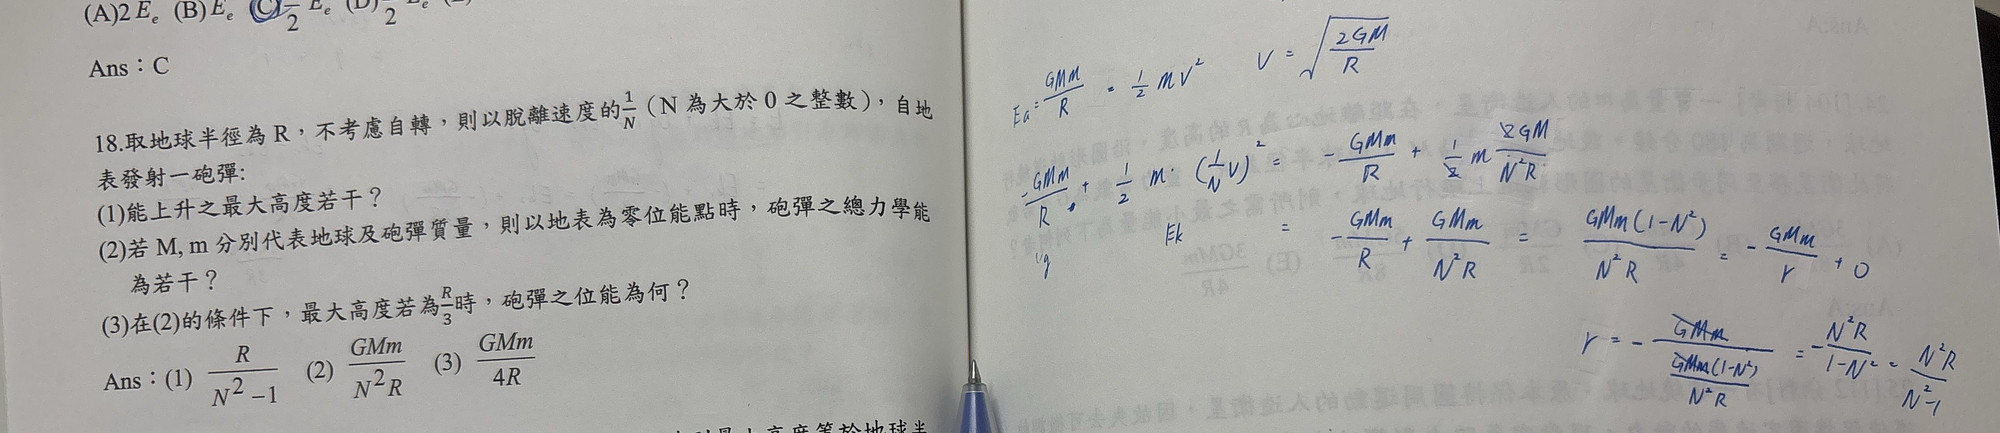 (A)2Eₑ (B)Eₑ (C)1/2 Eₑ (D) /2 Eₑ
Ans：C
18.取地球半徑為 R，不考慮自轉，則以脫離速度的1/N（N 為大於 0 之整數），自地
表發射一砲彈:
(1)能上升之最大高度若干？
(2)若 M, m 分別代表地球及砲彈質量，則以地表為零位能點時，砲彈之總力學能
為若干？
(3)在(2)的條件下，最大高度若為R/3時，砲彈之位能為何？
Ans：(1) R/(N²−1) (2) GMm/(N²R) (3) GMm/(4R)
Ea = GMm/R = 1/2 mv² V = √(2GM/R)
-GMm/R + 1/2 m·(1/N V)² = -GMm/R + 1/2 m 2GM/(N²R)
Ug Ek = -GMm/R + GMm/(N²R) = GMm(1-N²)/(N²R) = -GMm/r + 0
r = - GMm/(GMm(1-N²)/(N²R)) = -N²R/(1-N²) = N²R/(N²-1)